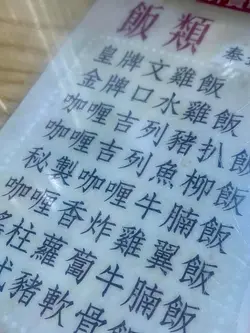 飯類
皇牌文雞飯
金牌口水雞飯
咖喱吉列豬扒飯
咖喱吉列魚柳飯
秘製咖喱牛腩飯
咖喱香炸雞翼飯
柱蘿蔔牛腩飯
豬軟骨飯